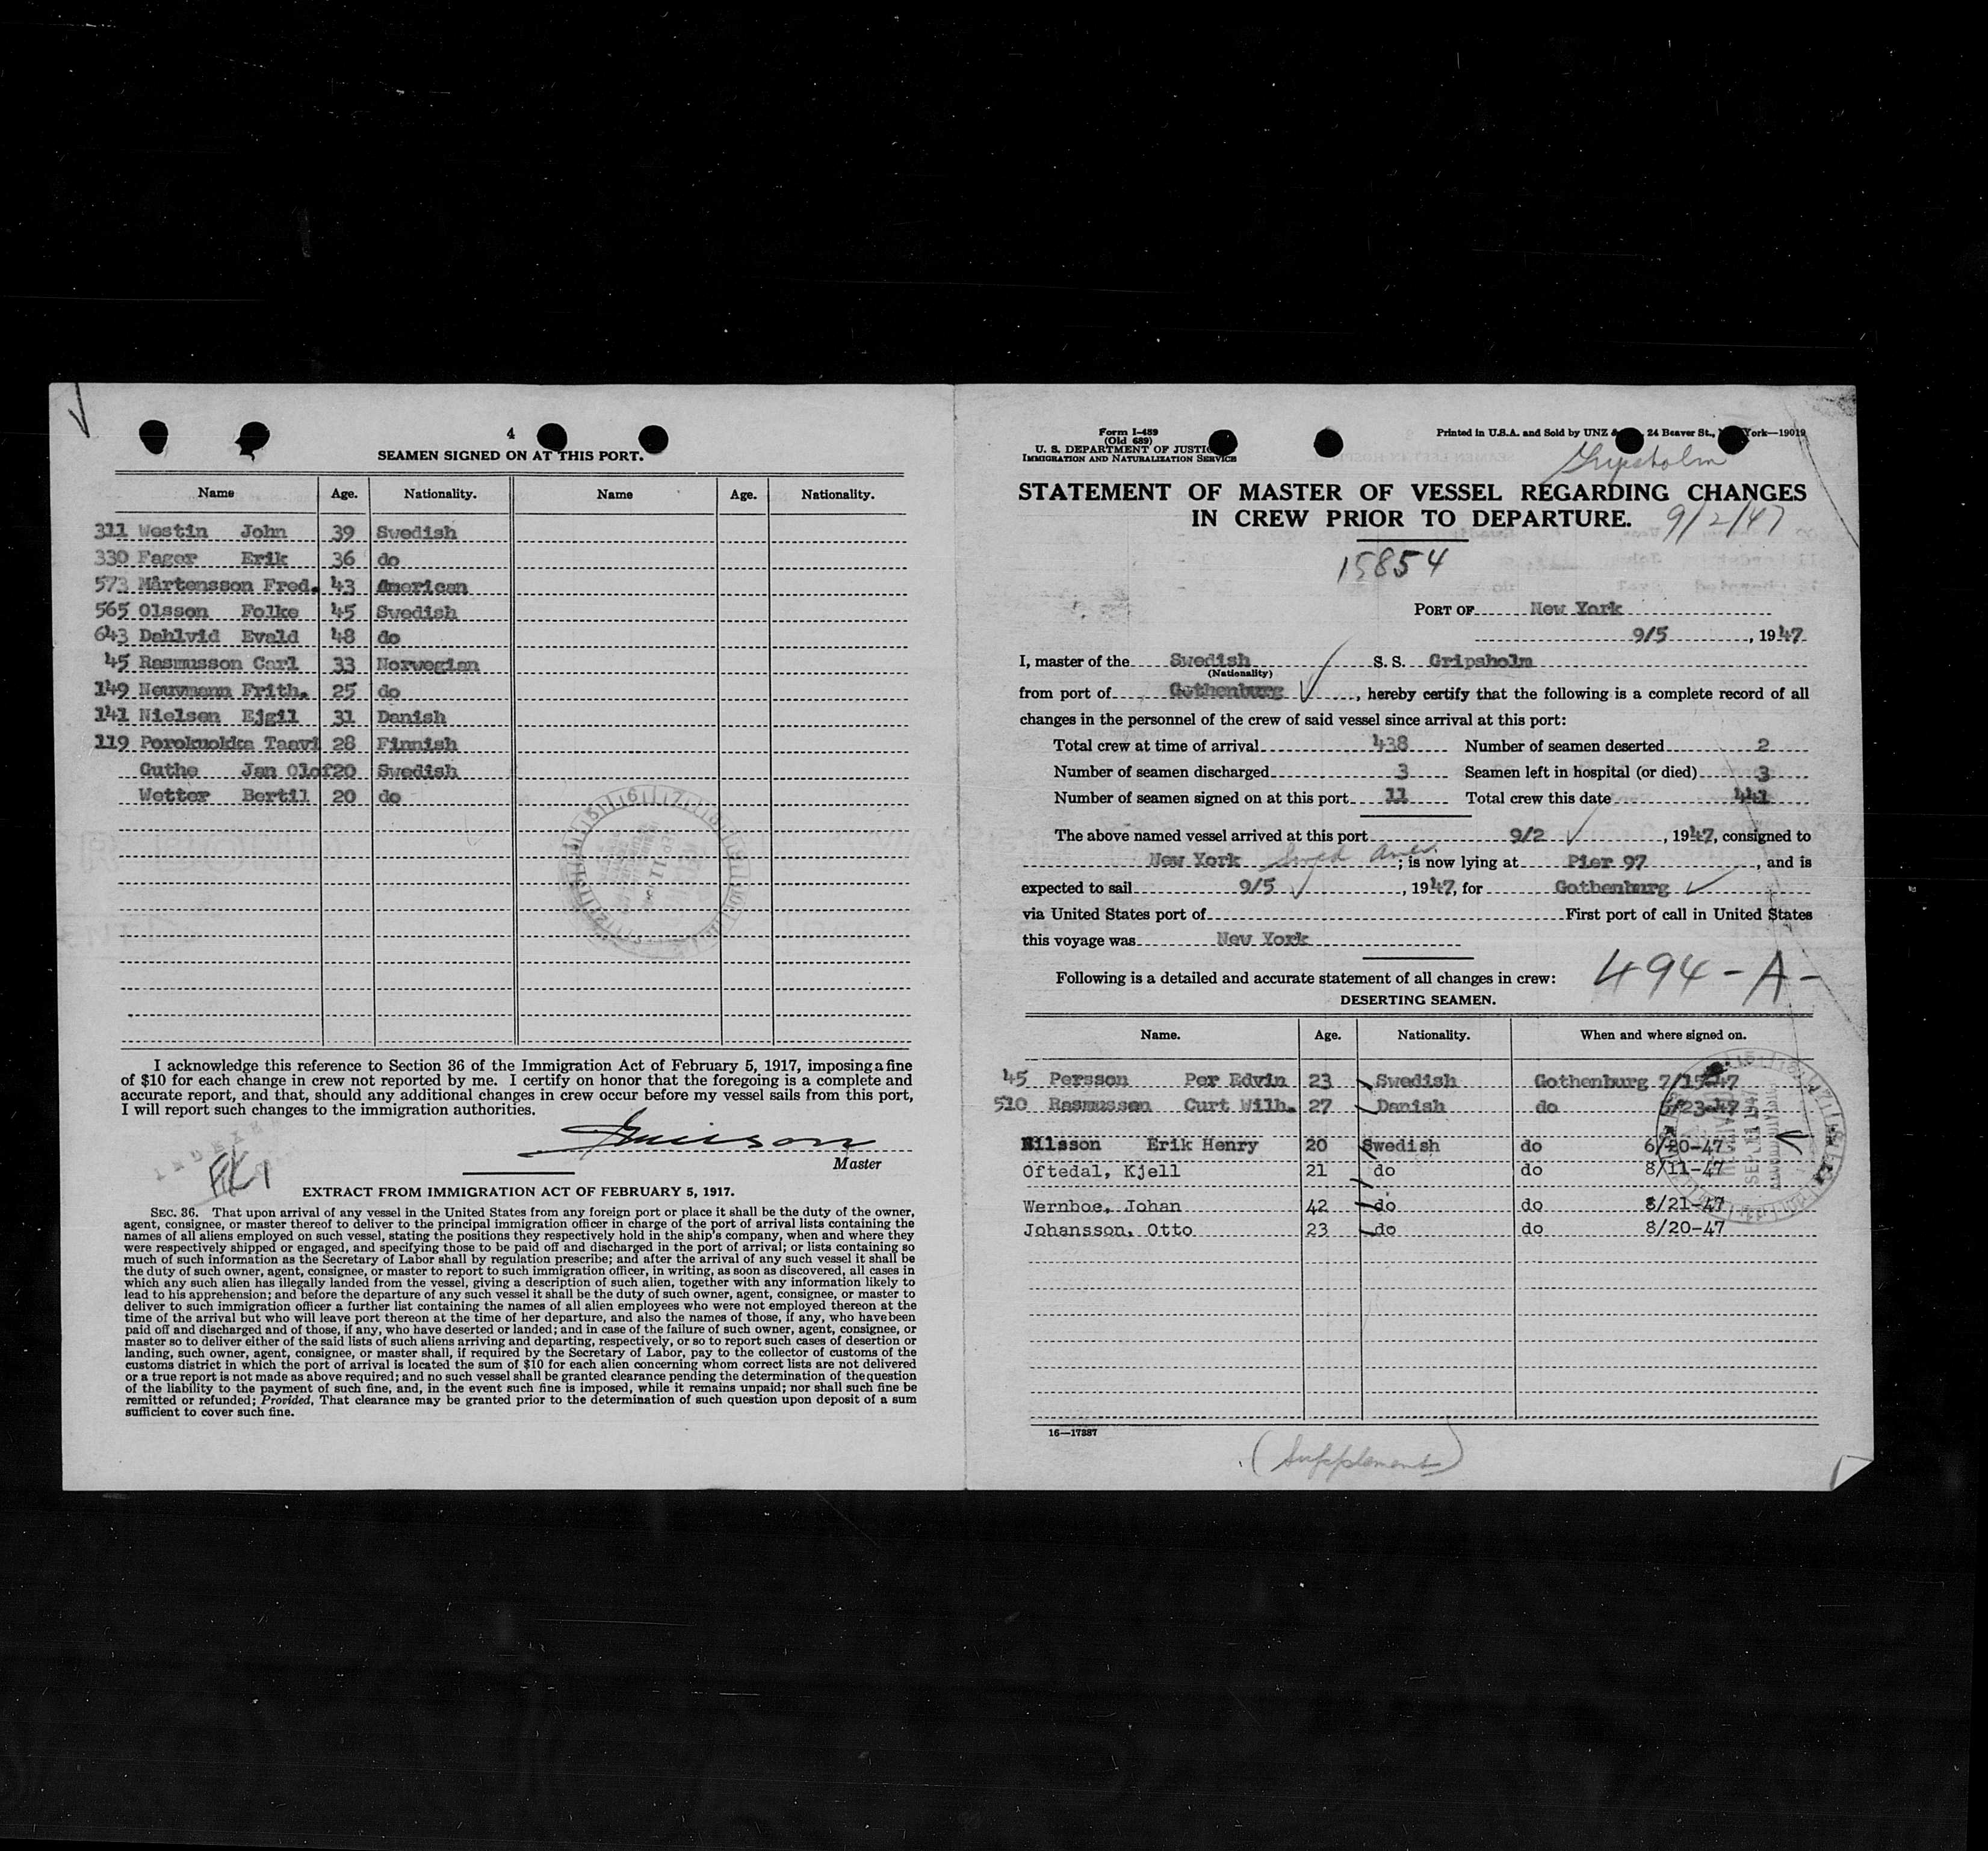 4
SEAMEN SIGNED ON AT THIS PORT.
Name Age. Nationality. Name Age. Nationality.
311 Westin John 39 Swedish
330 Fager Erik 36 do
573 Mårtensson Fred. 43 American
565 Olsson Folke 45 Swedish
643 Dahlvid Evald 48 do
45 Rasmusson Carl 33 Norwegian
149 Neuvmann Frith. 25 do
141 Nielsen Ejgil 31 Danish
119 Porokuokka Taavi 28 Finnish
Guthe Jan Olof 20 Swedish
Wetter Bertil 20 do
I acknowledge this reference to Section 36 of the Immigration Act of February 5, 1917, imposing a fine
of $10 for each change in crew not reported by me. I certify on honor that the foregoing is a complete and
accurate report, and that, should any additional changes in crew occur before my vessel sails from this port,
I will report such changes to the immigration authorities.
Master
INDEXED
EXTRACT FROM IMMIGRATION ACT OF FEBRUARY 5, 1917.
SEC. 36. That upon arrival of any vessel in the United States from any foreign port or place it shall be the duty of the owner,
agent, consignee, or master thereof to deliver to the principal immigration officer in charge of the port of arrival lists containing the
names of all aliens employed on such vessel, stating the positions they respectively hold in the ship's company, when and where they
were respectively shipped or engaged, and specifying those to be paid off and discharged in the port of arrival; or lists containing so
much of such information as the Secretary of Labor shall by regulation prescribe; and after the arrival of any such vessel it shall be
the duty of such owner, agent, consignee, or master to report to such immigration officer, in writing, as soon as discovered, all cases in
which any such alien has illegally landed from the vessel, giving a description of such alien, together with any information likely to
lead to his apprehension; and before the departure of any such vessel it shall be the duty of such owner, agent, consignee, or master to
deliver to such immigration officer a further list containing the names of all alien employees who were not employed thereon at the
time of the arrival but who will leave port thereon at the time of her departure, and also the names of those, if any, who have been
paid off and discharged and of those, if any, who have deserted or landed; and in case of the failure of such owner, agent, consignee, or
master so to deliver either of the said lists of such aliens arriving and departing, respectively, or so to report such cases of desertion or
landing, such owner, agent, consignee, or master shall, if required by the Secretary of Labor, pay to the collector of customs of the
customs district in which the port of arrival is located the sum of $10 for each alien concerning whom correct lists are not delivered
or a true report is not made as above required; and no such vessel shall be granted clearance pending the determination of the question
of the liability to the payment of such fine, and, in the event such fine is imposed, while it remains unpaid; nor shall such fine be
remitted or refunded; Provided, That clearance may be granted prior to the determination of such question upon deposit of a sum
sufficient to cover such fine.
Form I-489
(Old 689)
U. S. DEPARTMENT OF JUSTICE
IMMIGRATION AND NATURALIZATION SERVICE
Printed in U.S.A. and Sold by UNZ & 24 Beaver St., York—19019
Gripsholm
STATEMENT OF MASTER OF VESSEL REGARDING CHANGES
IN CREW PRIOR TO DEPARTURE. 9/2/47
15854
PORT OF New York
9/5, 1947
I, master of the Swedish S. S. Gripsholm
(Nationality)
from port of Gothenburg, hereby certify that the following is a complete record of all
changes in the personnel of the crew of said vessel since arrival at this port:
Total crew at time of arrival 438 Number of seamen deserted 2
Number of seamen discharged 3 Seamen left in hospital (or died) 3
Number of seamen signed on at this port 11 Total crew this date 441
The above named vessel arrived at this port 9/2, 1947, consigned to
New York Swed Amer.; is now lying at Pier 97, and is
expected to sail 9/5, 1947, for Gothenburg
via United States port of First port of call in United States
this voyage was New York
Following is a detailed and accurate statement of all changes in crew: 494-A-
DESERTING SEAMEN.
Name. Age. Nationality. When and where signed on.
45 Persson Per Edvin 23 Swedish Gothenburg 7/15-47
510 Rasmussen Curt Wilh. 27 Danish do 6/23-47
Nilsson Erik Henry 20 Swedish do 6/20-47
Oftedal, Kjell 21 do do 8/11-47
Wernboe, Johan 42 do do 8/21-47
Johansson, Otto 23 do do 8/20-47
16—17887
(Supplement)